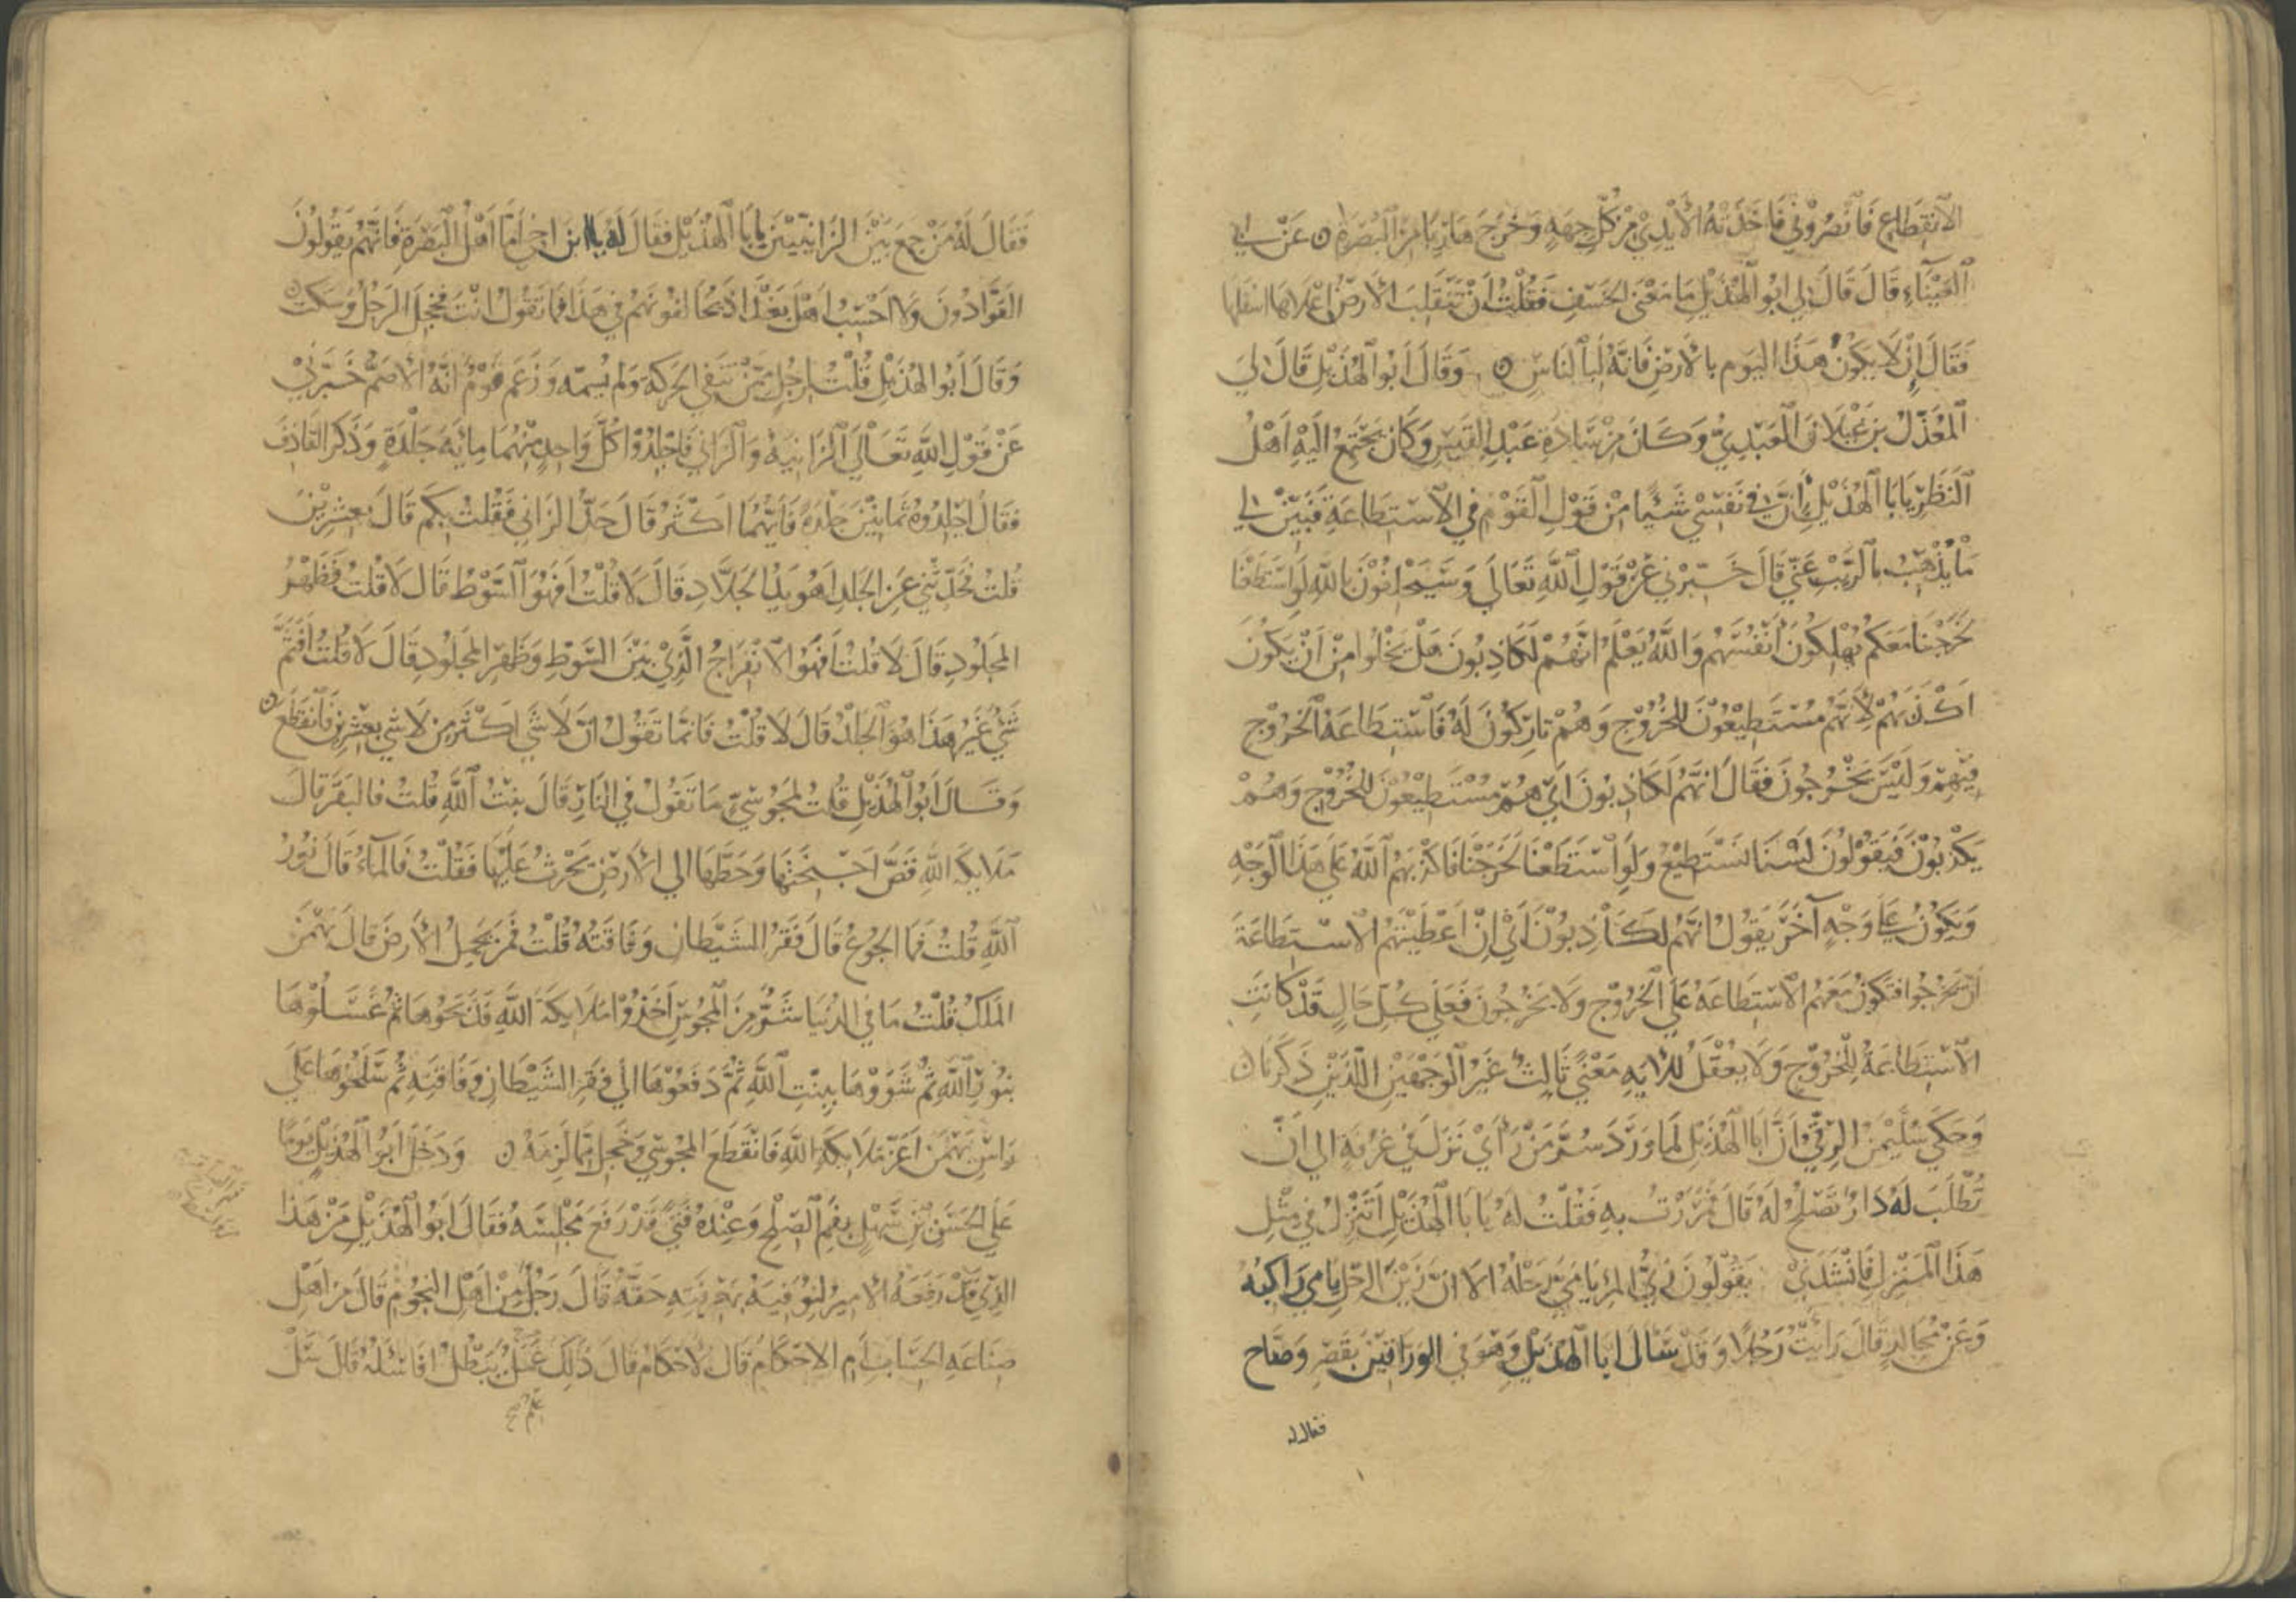 الانقطاع فانصروني فاخذته الأيدي من كل جهة وخرج هاربا من البصرة ٥ عن ابي
العيناء قال قال لي ابو الهذيل ما معنى الخسف فقلت أن تنقلب الأرض اعلاها اسفلها
فقال إن لا يكون هذا اليوم بالأرض فانه لبالناس ٥ وقال أبو الهذيل قال لي
المعذل بن غيلان العبدي وكان من سادة عبد القيس وكان يجتمع اليه اهل
النظر يا با الهذيل إن في نفسي شيئا من قول القوم في الاستطاعة فبين لي
ما يذهب بالريب عني قال خبرني عن قول الله تعالى وسيحلفون بالله لو استطعنا
لخرجنا معكم يهلكون أنفسهم والله يعلم انهم لكاذبون هل يخلوا من أن يكون
اكذبهم لأنهم مستطيعون للخروج وهم تاركون له فاستطاعة الخروج
فيهم وليس يخرجون فقال انهم لكاذبون اي هم مستطيعون للخروج وهم
يكذبون فيقولون لسنا نستطيع ولو استطعنا لخرجنا فاكذبهم الله على هذا الوجه
ويكون على وجه آخر يقول انهم لكاذبون أي إن اعطيتهم الاستطاعة
ان يخرجوا فتكون معهم الاستطاعة على الخروج ولا يخرجون فعلى كل حال قد كانت
الاستطاعة للخروج ولا يعقل للآية معنى ثالث غير الوجهين اللذين ذكرنا ٥
وحكى سليمن الرقي أن أبا الهذيل لما ورد سر من رأى نزل في غرفة الى ان
تطلب له دار تصلح له قال فمررت به فقلت له يا با الهذيل اتنزل في مثل
هذا المنزل فانشدني يقولون زين المرء يا مي رحله الا ان زين الرحل يا مي راكبه
وعن مجالد قال رأيت رجلا وقد سأل ابا الهذيل وهو في الوراقين بقصر وضاح
فقال له
فقال له من جمع بين الزانيين يا با الهذيل فقال له يا ابن اخي أما اهل البصرة فانهم يقولون
القوادون ولا احسب اهل بغداد يخالفونهم في هذا فما تقول انت فخجل الرجل وسكت ٥
وقال أبو الهذيل قلت لرجل ممن ينفي الحركة ولم يسمه وزعم قوم انه الأصم خبرني
عن قول الله تعالى الزانية والزاني فاجلدوا كل واحد منهما ماية جلدة وذكر القاذف
فقال اجلدوه ثمانين جلدة فايهما اكثر قال حد الزاني فقلت بكم قال بعشرين
قلت فحدثني عن الجلد اهو يد الجلاد قال لا قلت افهو السوط قال لا قلت فظهر
المجلود قال لا قلت أفهو الانفراج الذي بين السوط وظهر المجلود قال لا قلت أفثم
شيء غير هذا هو الجلد قال لا قلت فانما تقول ان لا شي اكثر من لا شي بعشرين فانقطع ٥
وقال أبو الهذيل قلت لمجوسي ما تقول في النار قال بنت الله قلت فالبقر قال
ملايكة الله قص اجنحتها وحطها الى الأرض يحرث عليها فقلت فالماء قال نور
الله قلت فما الجوع قال فقر الشيطان وفاقته قلت فمن يحمل الأرض قال بهمن
الملك قلت ما في الدنيا شر من المجوس أخذوا ملايكة الله فذبحوها ثم غسلوها
بنور الله ثم شووها ببنت الله ثم دفعوها الى فقر الشيطان وفاقته ثم سلحوها على
راس بهمن أعز ملايكة الله فانقطع المجوسي وخجل مما لزمه ٥ ودخل ابو الهذيل يوما
على الحسن بن سهل بفم الصلح وعنده فتى قد رفع مجلسه فقال ابو الهذيل من هذا
الذي قد رفعه الأمير لنوفيه بمعرفته حقه قال رجل من أهل النجوم قال من اهل
صناعة الحساب ام الاحكام قال الاحكام قال ذلك عمل يبطل افاسئله قال سل